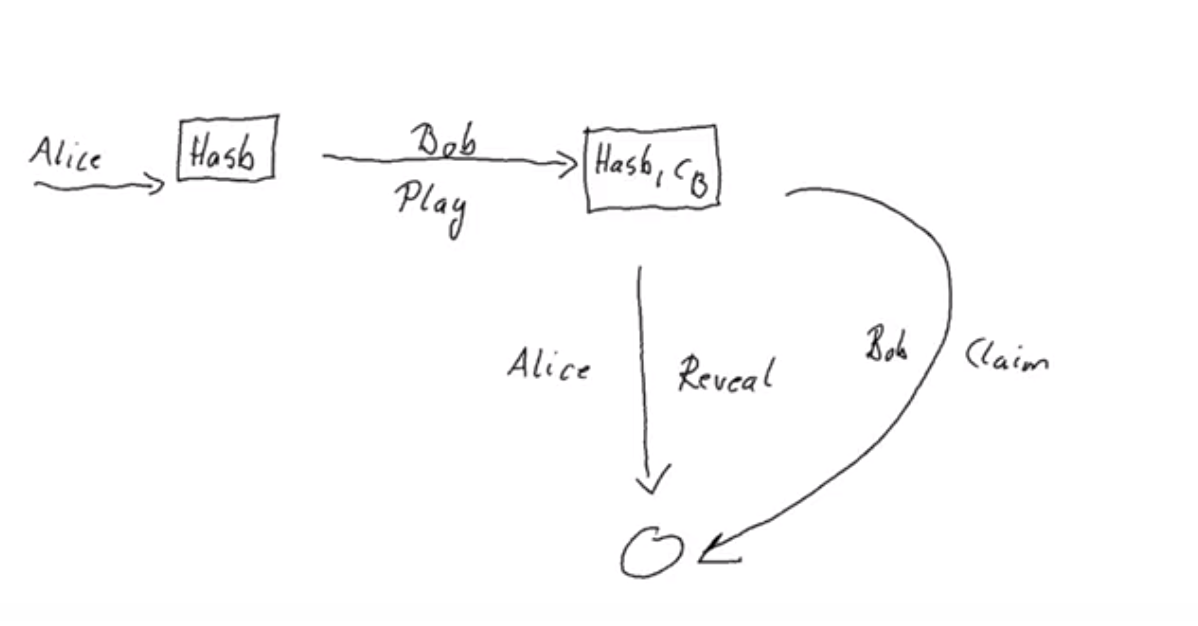 Alice
Hash
Bob
Play
Hash, CB
Alice
Reveal
Bob
Claim